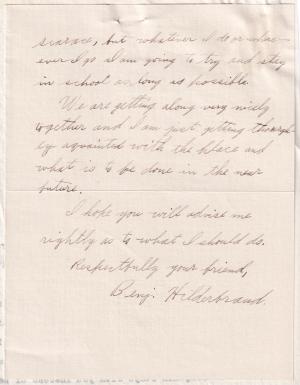 scarace, but whatever I do or wher-
ever I go I am going to try and stay
in school as long as possible.
We are getting along very nicely
together and I am just getting thorough-
ly aquainted with the place and
what is to be done in the near
future.
I hope you will advise me
rightly as to what I should do.
Respectfully your friend,
Benj. Hilderbrand.